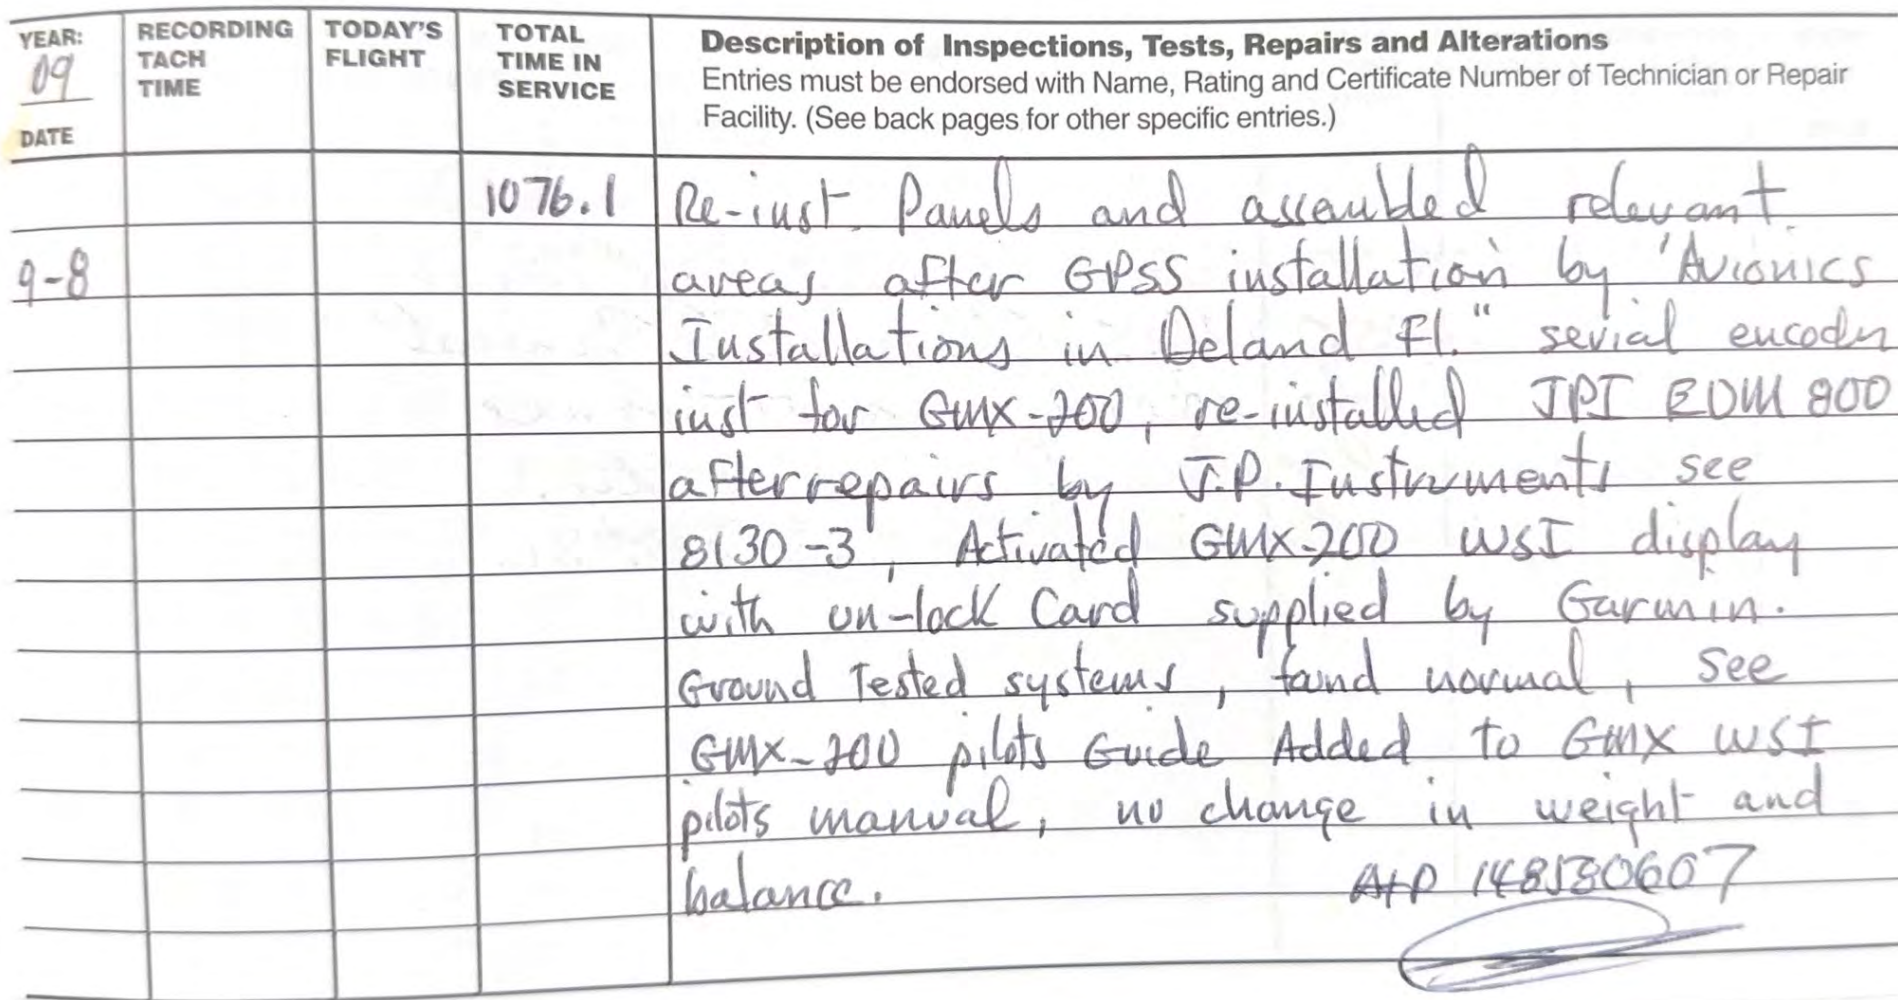 YEAR: 09
DATE
RECORDING TACH TIME
TODAY'S FLIGHT
TOTAL TIME IN SERVICE
Description of Inspections, Tests, Repairs and Alterations
Entries must be endorsed with Name, Rating and Certificate Number of Technician or Repair
Facility. (See back pages for other specific entries.)
1076.1 Re-inst. Panels and assembled relevant
9-8 areas after GPSS installation by "Avionics
Installations in Deland Fl." serial encoder
inst for GMX-200, re-installed JPI EDM 800
after repairs by J.P. Instruments see
8130-3, Activated GMX-200 WSI display
with un-lock Card supplied by Garmin.
Ground Tested systems, found normal, See
GMX-200 pilots Guide Added to GMX WSI
pilots manual, no change in weight and
balance. A+P 148580607